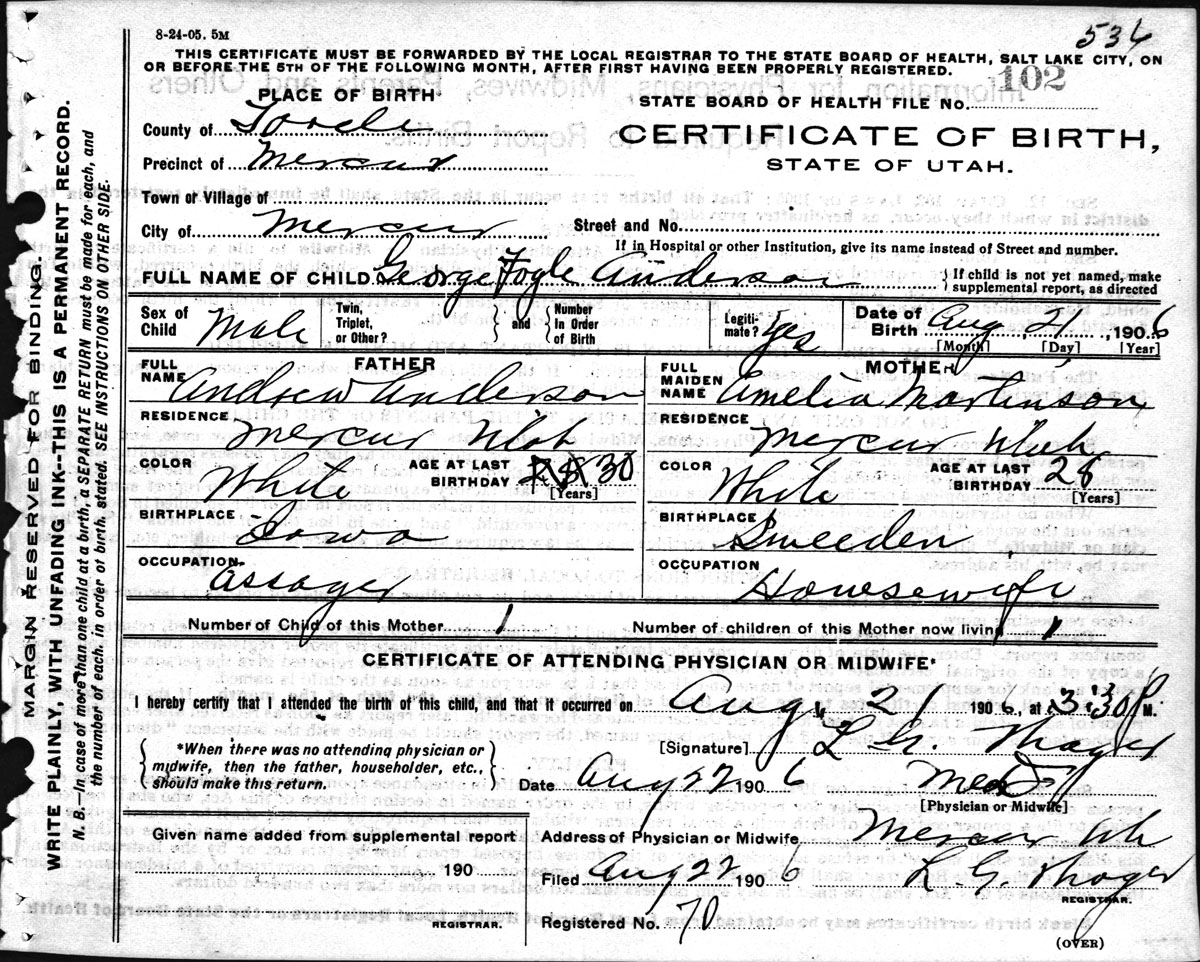 8-24-05. 5M
536
THIS CERTIFICATE MUST BE FORWARDED BY THE LOCAL REGISTRAR TO THE STATE BOARD OF HEALTH, SALT LAKE CITY, ON
OR BEFORE THE 5TH OF THE FOLLOWING MONTH, AFTER FIRST HAVING BEEN PROPERLY REGISTERED.
PLACE OF BIRTH
STATE BOARD OF HEALTH FILE No. 102
County of Tooele
CERTIFICATE OF BIRTH,
Precinct of Mercur
STATE OF UTAH.
Town or Village of
City of Mercur Street and No.
If in Hospital or other Institution, give its name instead of Street and number.
FULL NAME OF CHILD George Fogle Anderson { If child is not yet named, make supplemental report, as directed
Sex of Child Male Twin, Triplet, or Other? } and { Number In Order of Birth Legiti- mate? Yes Date of Birth Aug 21, 1906
[Month] [Day] [Year]
FATHER
MOTHER
FULL NAME Andrew Anderson
FULL MAIDEN NAME Amelia Martinson
RESIDENCE Mercur Utah
RESIDENCE Mercur Utah
COLOR White AGE AT LAST BIRTHDAY 30 [Years]
COLOR White AGE AT LAST BIRTHDAY 28 [Years]
BIRTHPLACE Iowa
BIRTHPLACE Sweeden
OCCUPATION Assayer
OCCUPATION Housewife
Number of Child of this Mother 1 Number of children of this Mother now living 1
CERTIFICATE OF ATTENDING PHYSICIAN OR MIDWIFE*
I hereby certify that I attended the birth of this child, and that it occurred on Aug 21 1906, at 3:30 P M.
{ *When there was no attending physician or midwife, then the father, householder, etc., should make this return. }
[Signature] L G. Thayer
Date Aug 22 1906
[Physician or Midwife]
Given name added from supplemental report
190
REGISTRAR.
Address of Physician or Midwife Mercur
Filed Aug 22 1906 L. G. Thayer
REGISTRAR.
Registered No. 70
(OVER)
MARGIN RESERVED FOR BINDING.
WRITE PLAINLY, WITH UNFADING INK--THIS IS A PERMANENT RECORD.
N. B.--In case of more than one child at a birth, a SEPARATE RETURN must be made for each, and
the number of each, in order of birth, stated. SEE INSTRUCTIONS ON OTHER SIDE.